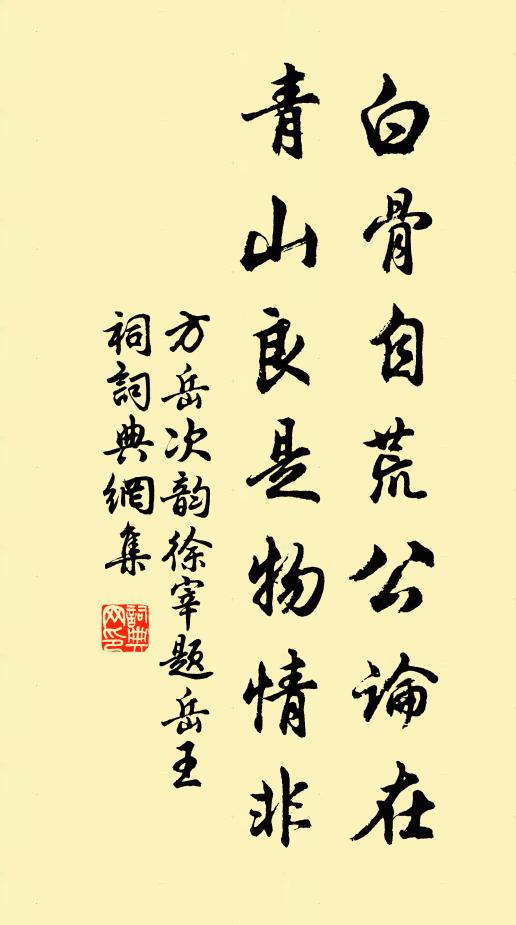 白骨自荒公論在
青山良是物情非
方岳次韵徐宰題岳王
祠詞典網集
詞典
网印